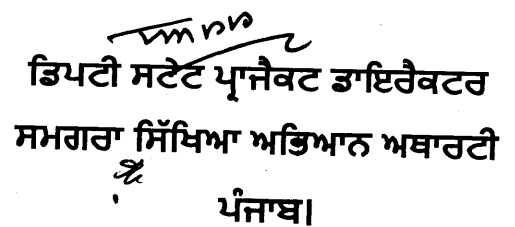 ਡਿਪਟੀ ਸਟੇਟ ਪ੍ਰਾਜੈਕਟ ਡਾਇਰੈਕਟਰ
ਸਮਗਰਾ ਸਿੱਖਿਆ ਅਭਿਆਨ ਅਥਾਰਟੀ
ਪੰਜਾਬ।